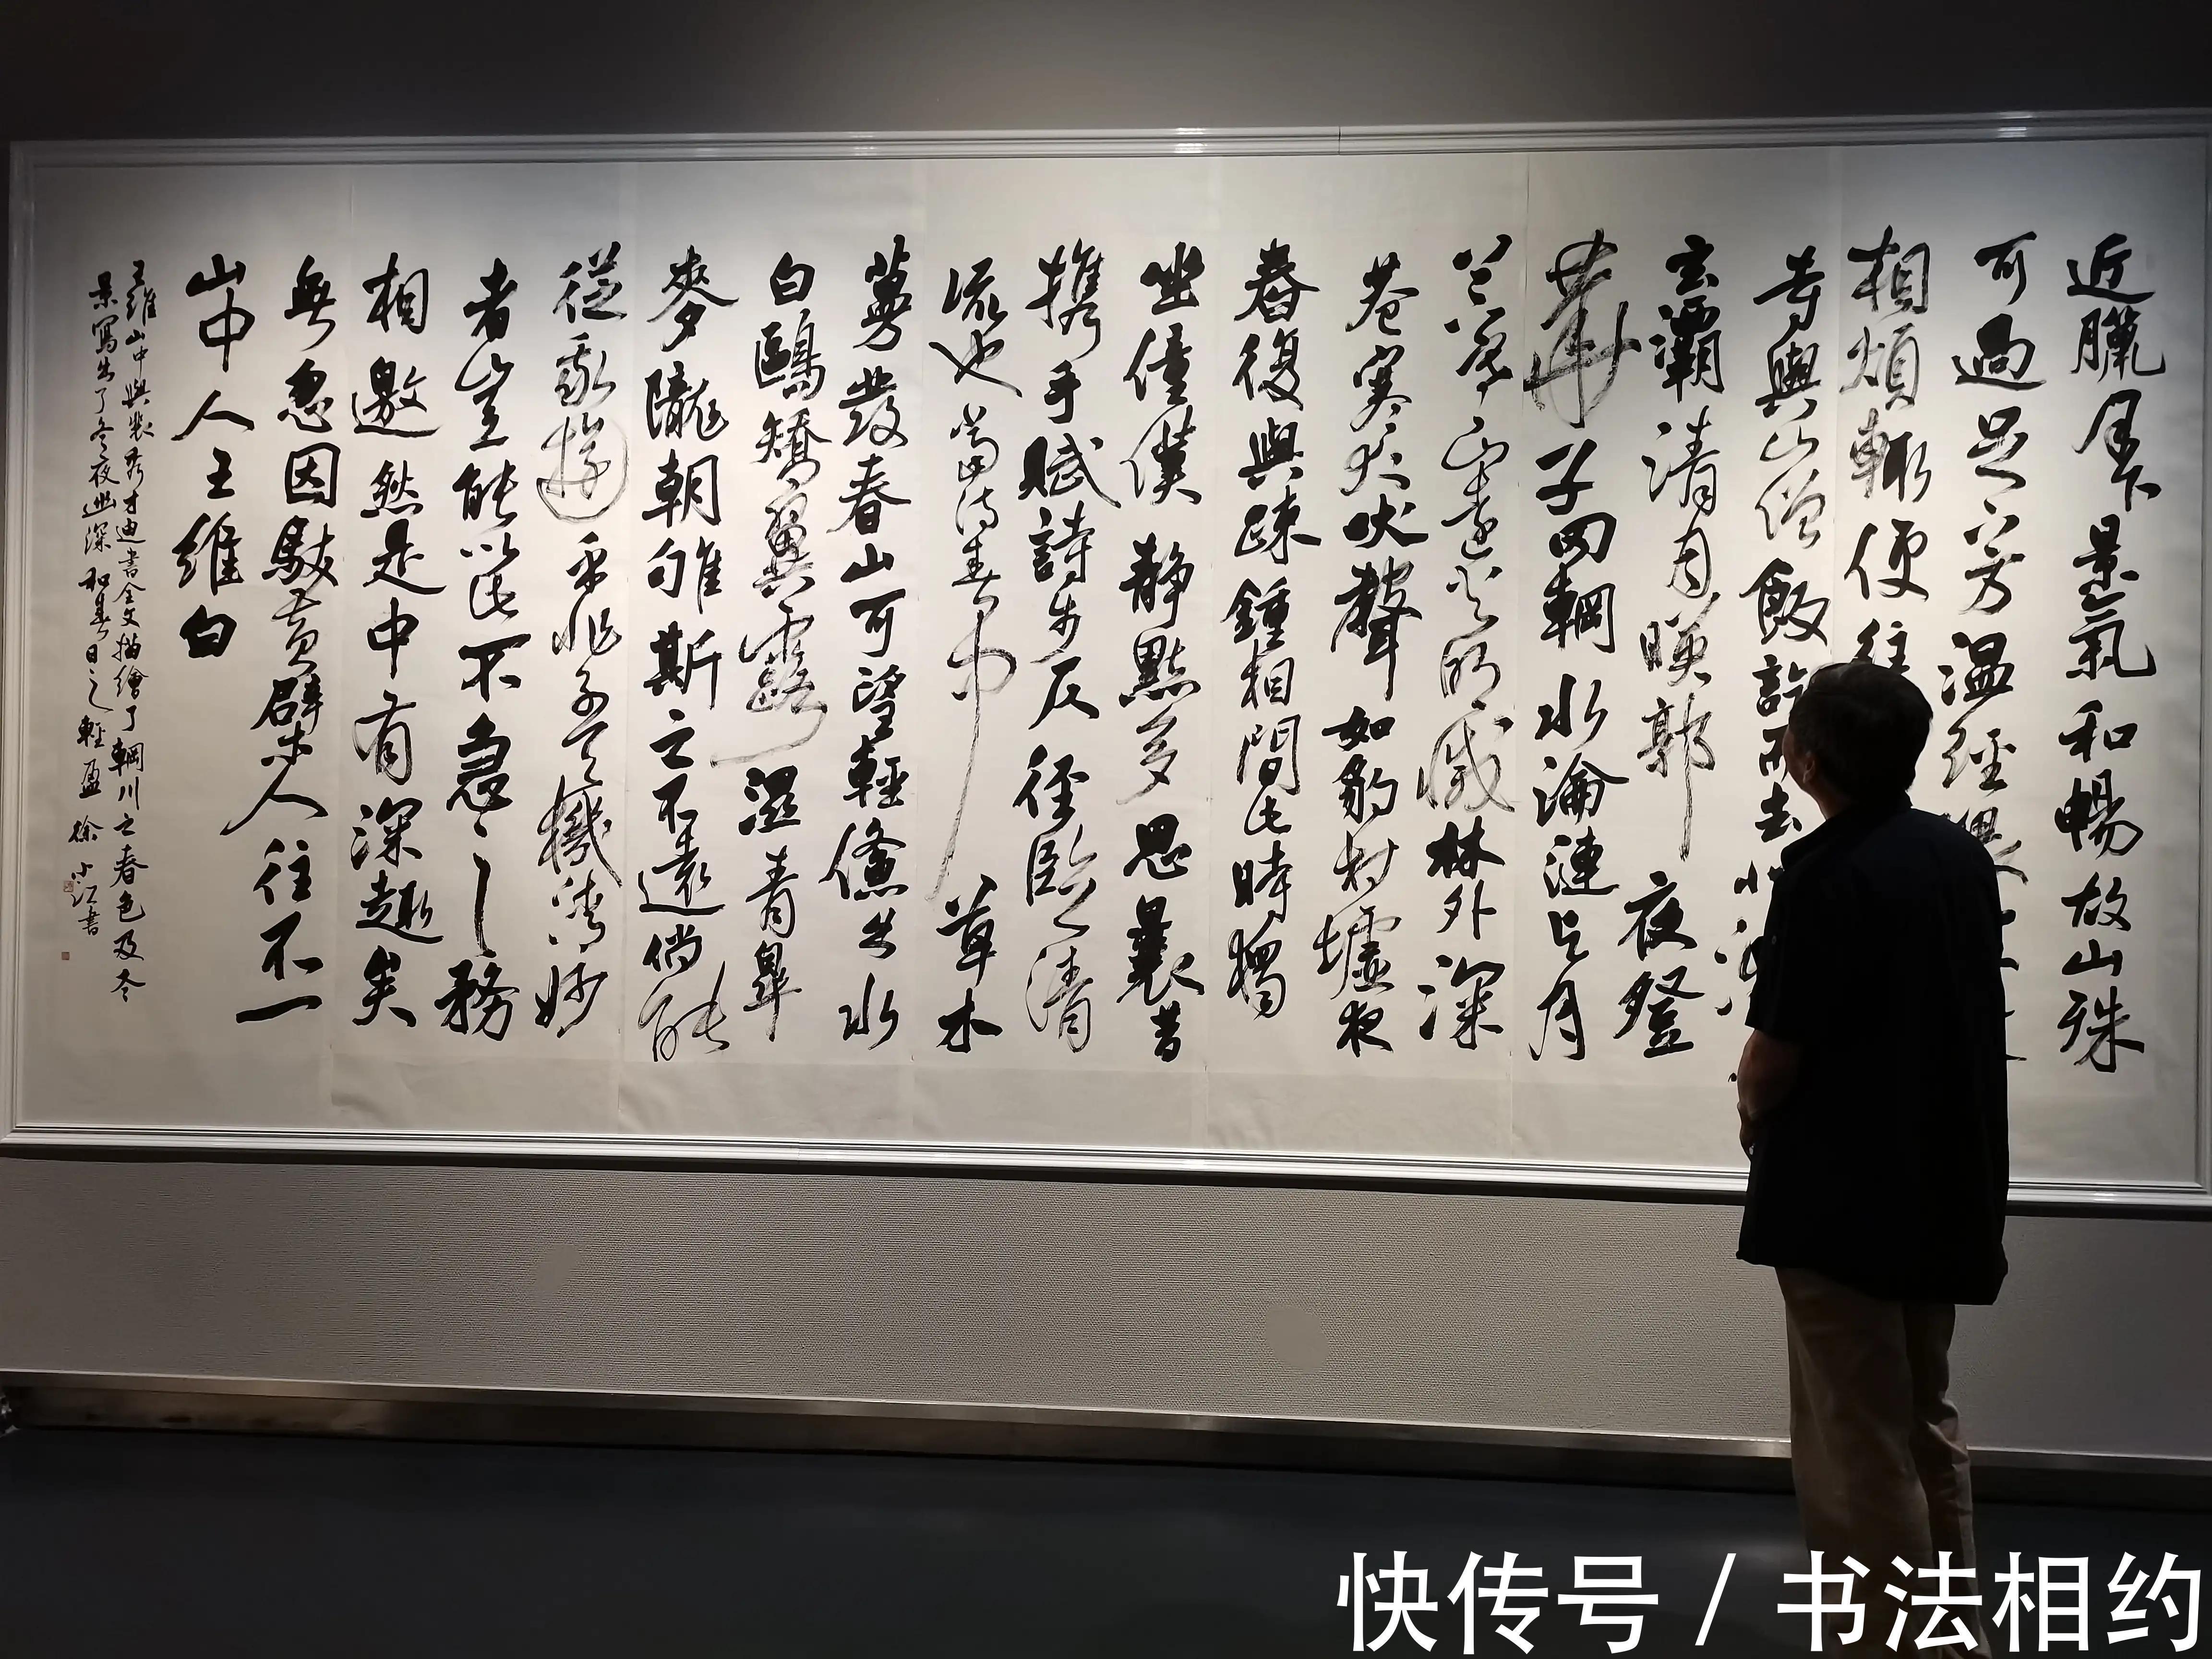 近臘月下景氣和暢故山殊
可過足下方温經
相煩輒便往
寺與山僧飯訖而去
玄灞清月暎郭 夜登
華子岡輞水淪漣與月
上下寒山遠火明滅林外深
巷寒犬吠聲如豹村墟夜
舂復與疎鐘相間此時獨
坐僮僕靜默多思曩昔
携手賦詩步仄徑臨清
流也當待春中草木
蔓發春山可望輕鯈出水
白鷗矯翼露濕青皋
麥隴朝雊斯之不遠倘能
從我遊乎非子天機清妙
者豈能以此不急之務
相邀然是中有深趣矣
無忽因馱黄檗人往不一
山中人王維白
王維山中與裴秀才迪書全文描繪了輞川之春色及冬
景寫出了冬夜幽深和春日之輕盈 徐小江書
快传号 / 书法相约